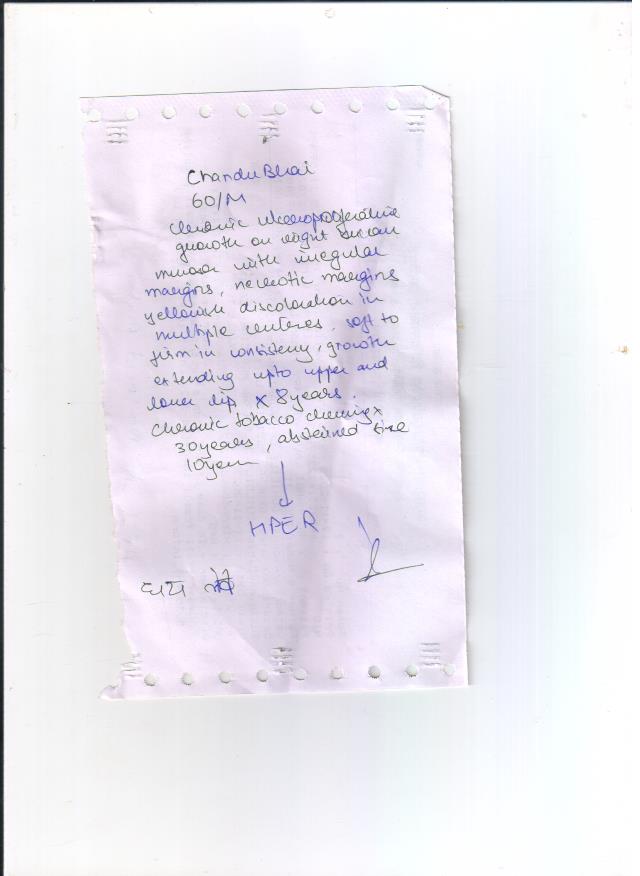 Chandu Bhai
60/M
Chronic ulceroproliferative
growth on right buccal
mucosa with irregular
margins, necrotic margins
yellowish discoloration in
multiple centres, soft to
firm in consistency, growth
extending upto upper and
lower lip x 8years.
Chronic tobacco chewing x
30years, abstained since
10years
HPER